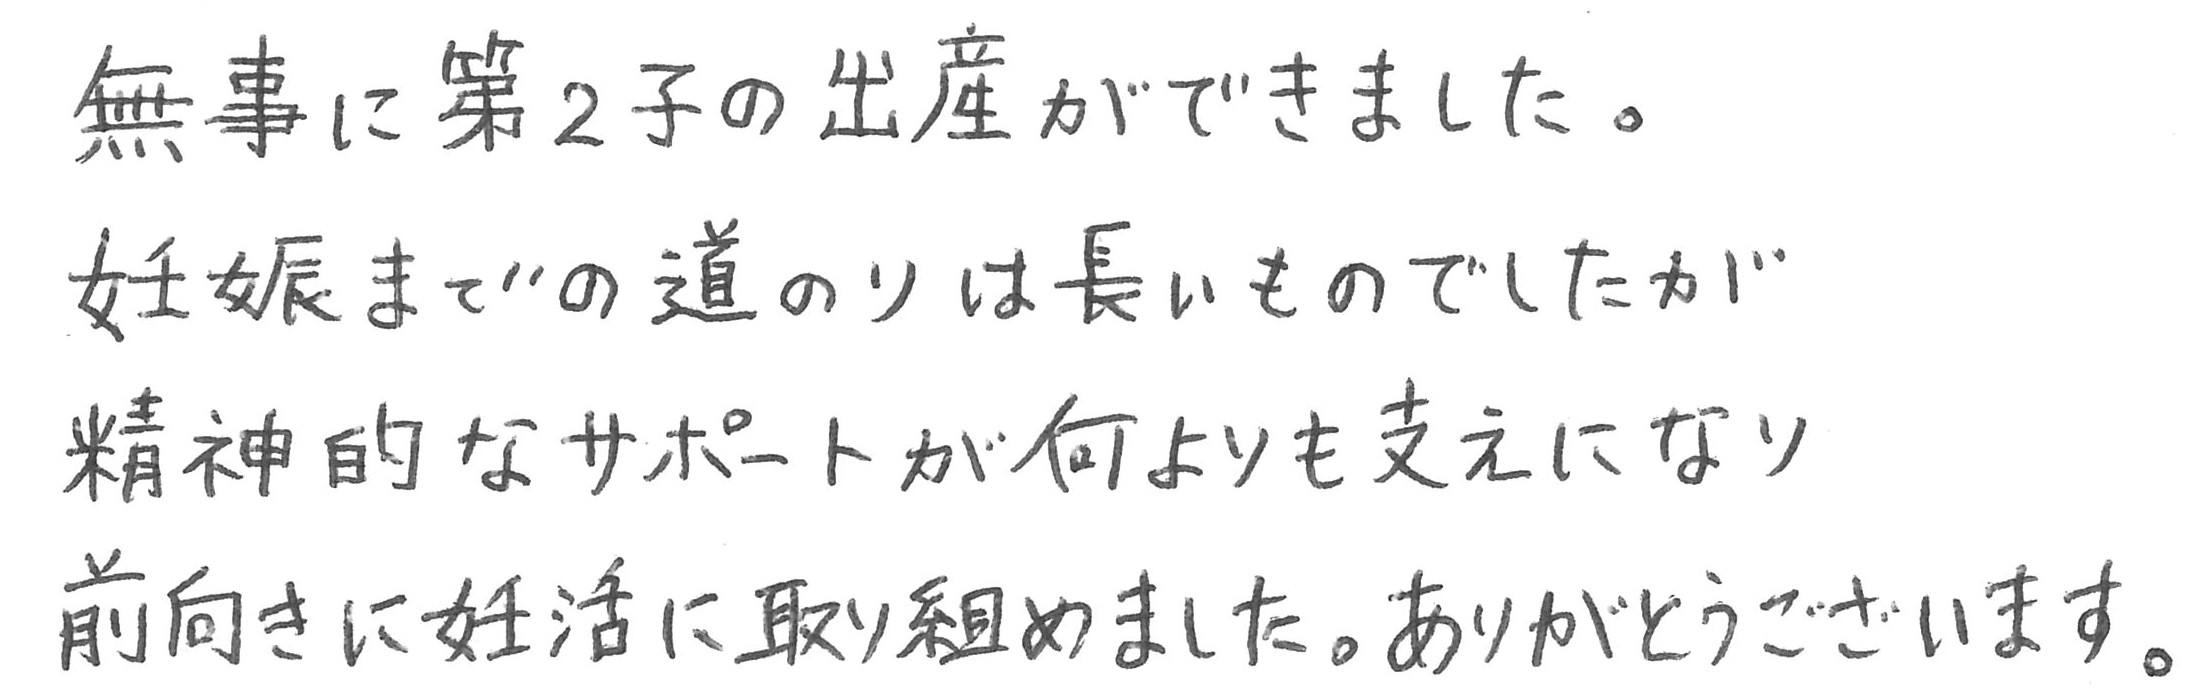 無事に第2子の出産ができました。
妊娠までの道のりは長いものでしたが
精神的なサポートが何よりも支えになり
前向きに妊活に取り組めました。ありがとうございます。